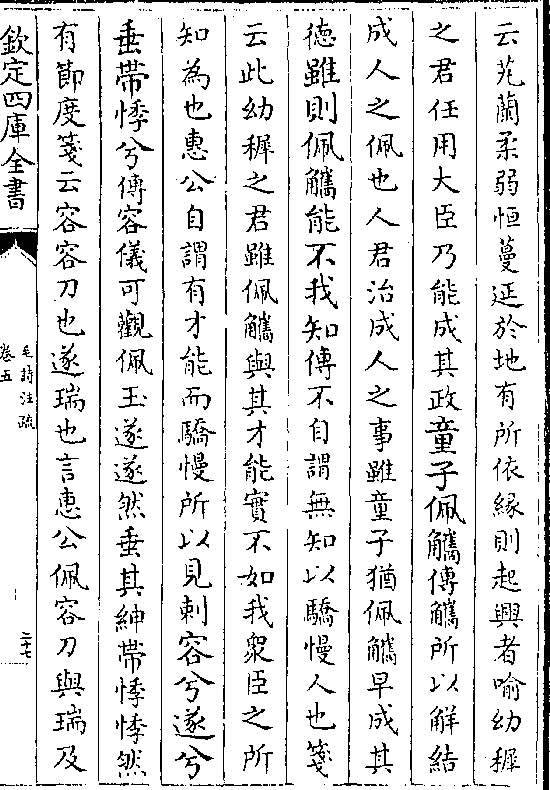 云芄蘭柔弱恒蔓延於地有所依緣則起興者喻幼穉
之君任用大臣乃能成其政童子佩觿傳觿所以解結
成人之佩也人君治成人之事雖童子猶佩觿早成其
德雖則佩觿能不我知傳不自謂無知以驕慢人也箋
云此幼穉之君雖佩觿與其才能實不如我衆臣之所
知為也惠公自謂有才能而驕慢所以見刺容兮遂兮
垂帶悸兮傳容儀可觀佩玉遂遂然垂其紳帶悸悸然
有節度箋云容容刀也遂瑞也言惠公佩容刀與瑞及
欽定四庫全書
毛詩注疏
卷五
二十七